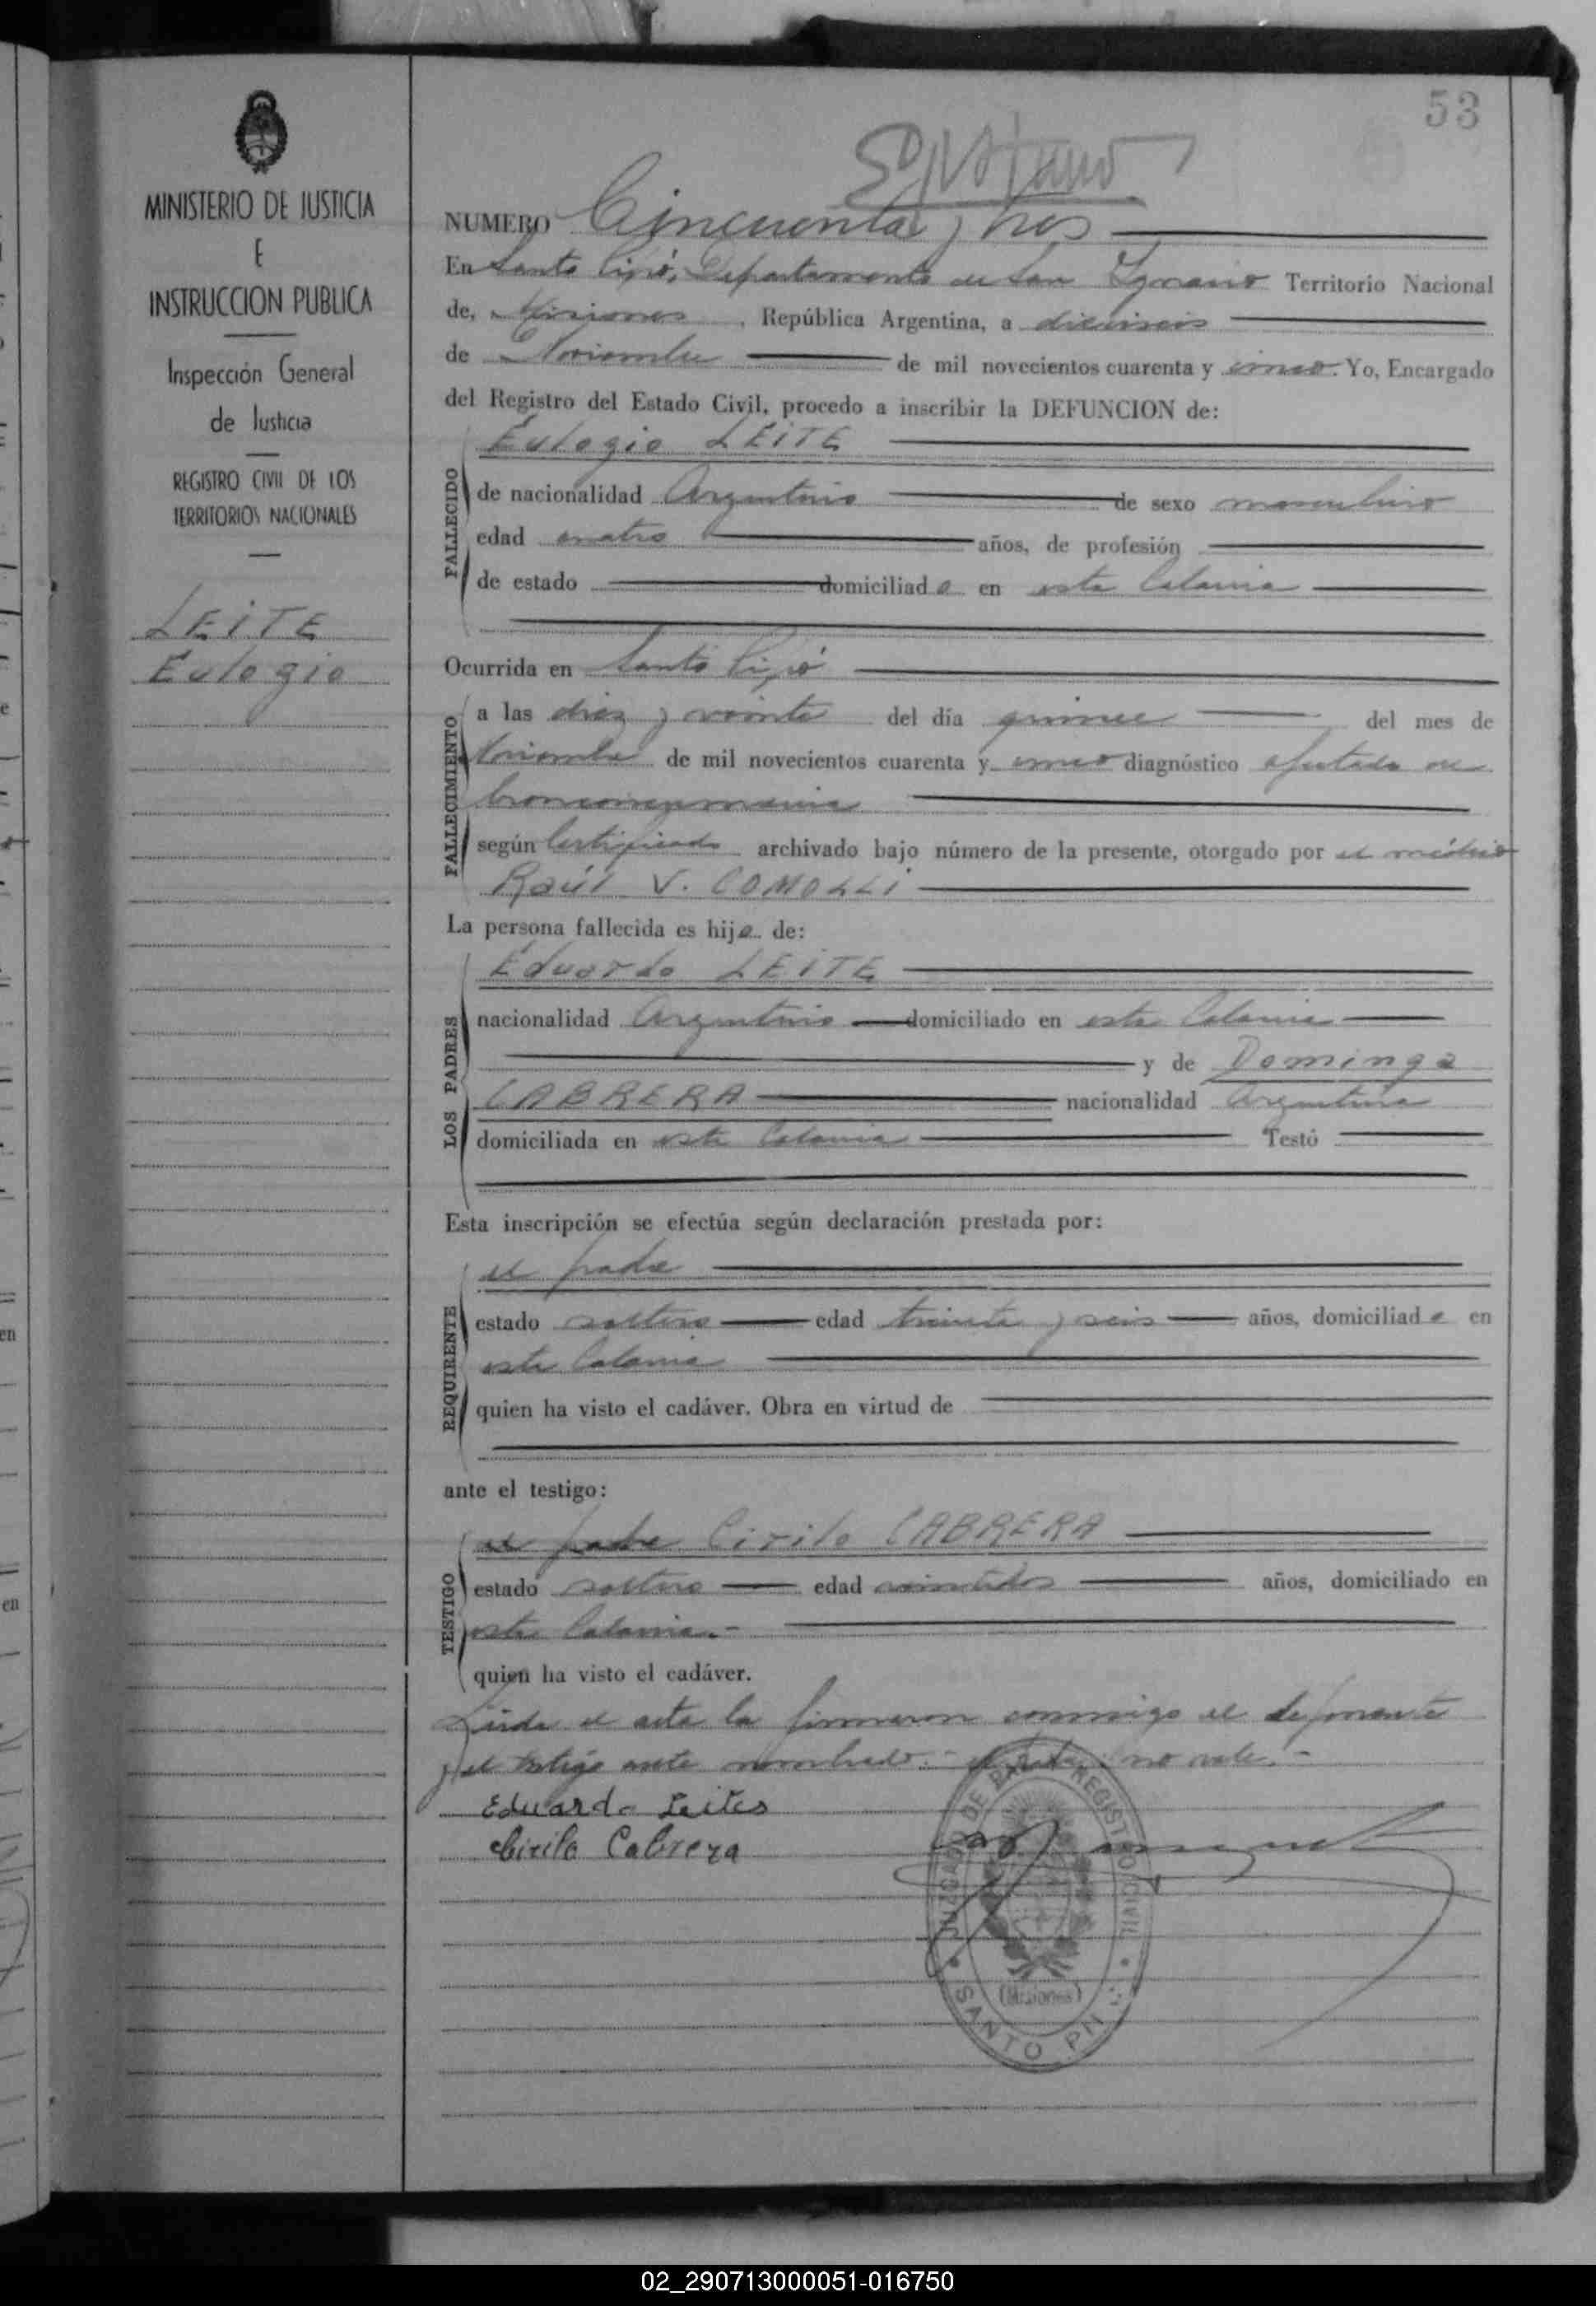 53
MINISTERIO DE JUSTICIA
E
INSTRUCCION PUBLICA
Inspección General
de Justicia
REGISTRO CIVIL DE LOS
TERRITORIOS NACIONALES
LEITE
Eulogio
NUMERO Cincuenta y tres
En Santo Pipó, Departamento de San Ignacio Territorio Nacional
de, Misiones, República Argentina, a dieciseis
de Noviembre de mil novecientos cuarenta y cinco. Yo, Encargado
del Registro del Estado Civil, procedo a inscribir la DEFUNCION de:
FALLECIDO
Eulogio LEITE
de nacionalidad Argentino de sexo masculino
edad cuatro años, de profesión
de estado domiciliado en esta Colonia
Ocurrida en Santo Pipó
FALLECIMIENTO
a las diez y veinte del día quince del mes de
Noviembre de mil novecientos cuarenta y cinco diagnóstico afectado de
bronconeumonia
según Certificado archivado bajo número de la presente, otorgado por el médico
Raúl V. COMOLLI
La persona fallecida es hijo de:
LOS PADRES
Eduardo LEITE
nacionalidad Argentino domiciliado en esta Colonia
y de Dominga
CABRERA nacionalidad Argentina
domiciliada en esta Colonia Testó
Esta inscripción se efectúa según declaración prestada por:
REQUIRENTE
el padre
estado soltero edad treinta y seis años, domiciliado en
esta Colonia
quien ha visto el cadáver. Obra en virtud de
ante el testigo:
TESTIGO
el padre Cirilo CABRERA
estado soltero edad veintidos años, domiciliado en
esta Colonia.-
quien ha visto el cadáver.
Leida el acta la firmaron conmigo el deponente
y el testigo ante nombrado.- el padre: no vale.-
Eduardo Leites
Cirilo Cabrera
JUZGADO DE PAZ Y REGISTRO CIVIL
(Misiones)
SANTO PI
02_290713000051-016750